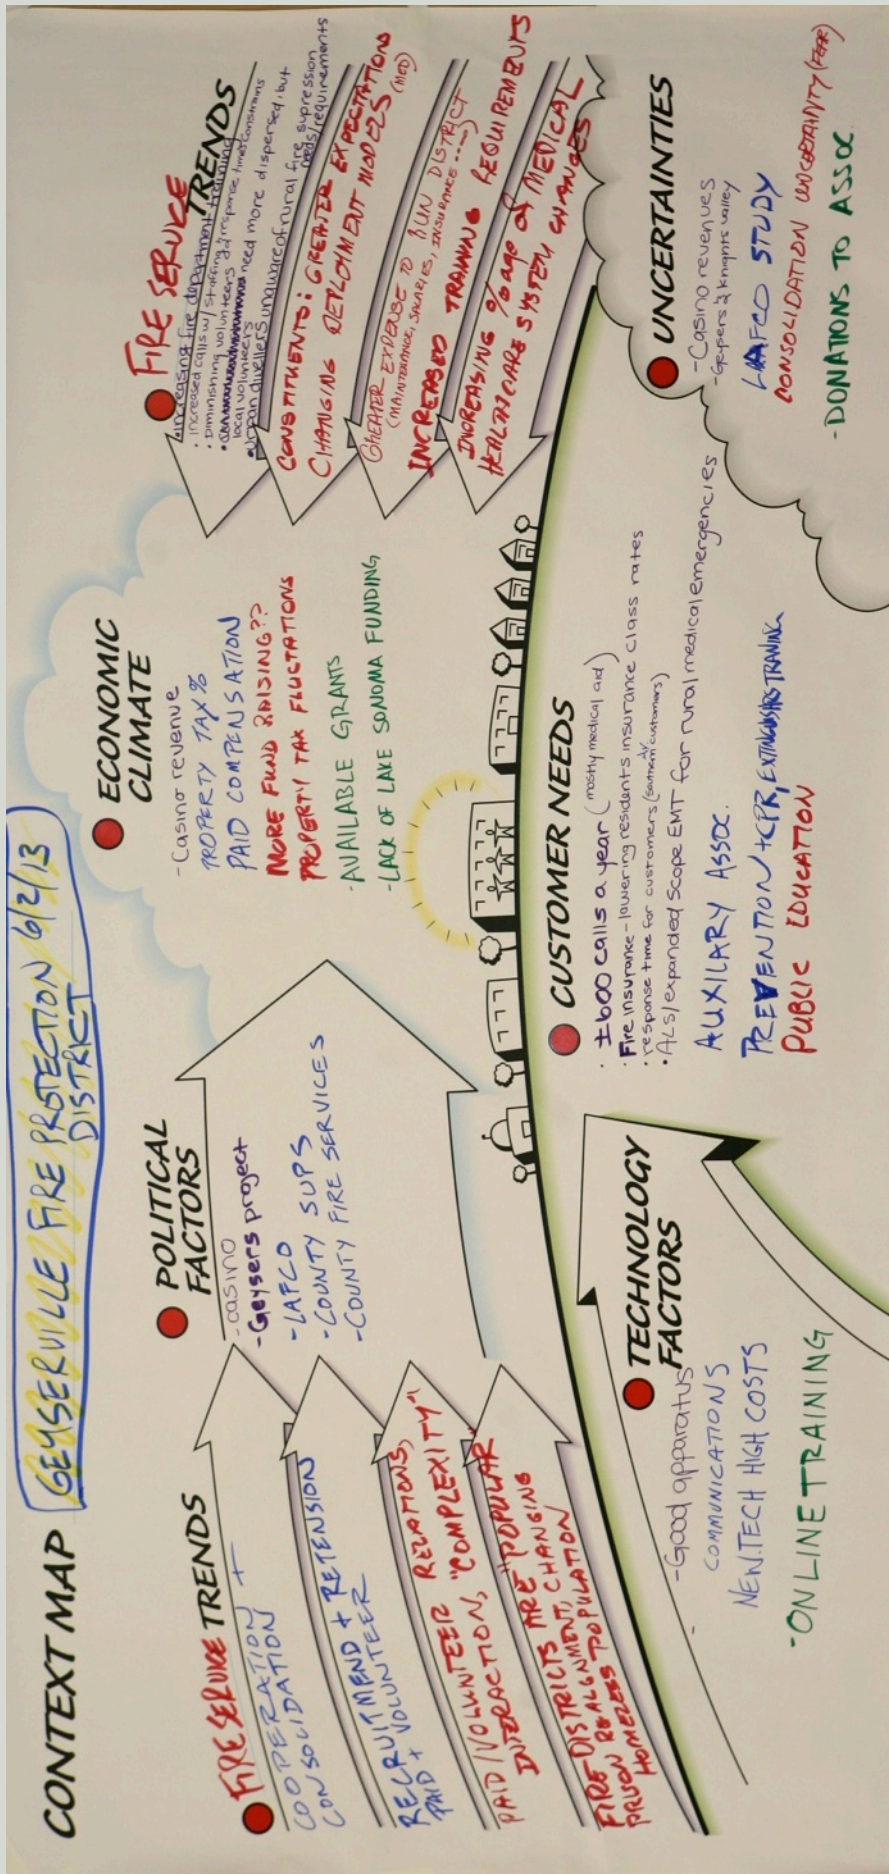 CONTEXT MAP
GEYSERVILLE FIRE PROTECTION 6/2/13
DISTRICT
FIRE SERVICE TRENDS
COOPERATION +
CONSOLIDATION
RECRUITMEND + RETENSION
PAID + VOLUNTEER
PAID/VOLUNTEER RELATIONS,
INTERACTION, "COMPLEXITY"
FIRE DISTRICTS ARE "POPULAR"
PRISON REALIGNMENT, CHANGING
HOMELESS POPULATION
POLITICAL
FACTORS
- casino
- Geysers project
- LAFCO
- COUNTY SUPS
- COUNTY FIRE SERVICES
ECONOMIC
CLIMATE
- Casino revenue
PROPERTY TAX %
PAID COMPENSATION
MORE FUND RAISING??
PROPERTY TAX FLUCTATIONS
- AVAILABLE GRANTS
- LACK OF LAKE SONOMA FUNDING
FIRE SERVICE
TRENDS
• increasing fire department training
• increased calls w/ staffing & response time constrains
• Diminishing volunteers
need more dispersed, but
local volunteers
• urban dwellers unaware of rural fire supression
needs/requirements
CONSTITUENTS: GREATER EXPECTATIONS
CHANGING DEPLOYMENT MODELS (MED)
GREATER EXPENSE TO RUN DISTRICT
(MAINTENANCE, SALARIES, INSURANCE ....)
INCREASED TRAINING REQUIREMENTS
INCREASING %age of MEDICAL
HEALTHCARE SYSTEM CHANGES
TECHNOLOGY
FACTORS
- Good apparatus
COMMUNICATIONS
NEW.TECH HIGH COSTS
- ONLINE TRAINING
CUSTOMER NEEDS
• ±600 calls a year (mostly medical aid)
• Fire insurance - lowering residents insurance class rates
• response time for customers (southern AV customers)
• ALS/expanded scope EMT for rural medical emergencies
AUXILARY ASSOC.
PREVENTION + CPR, EXTINGUISHERS TRAINING
PUBLIC EDUCATION
UNCERTAINTIES
- Casino revenues
- Geysers & Knights Valley
LAFCO STUDY
CONSOLIDATION UNCERTAINTY (FEAR)
- DONATIONS TO ASSOC.